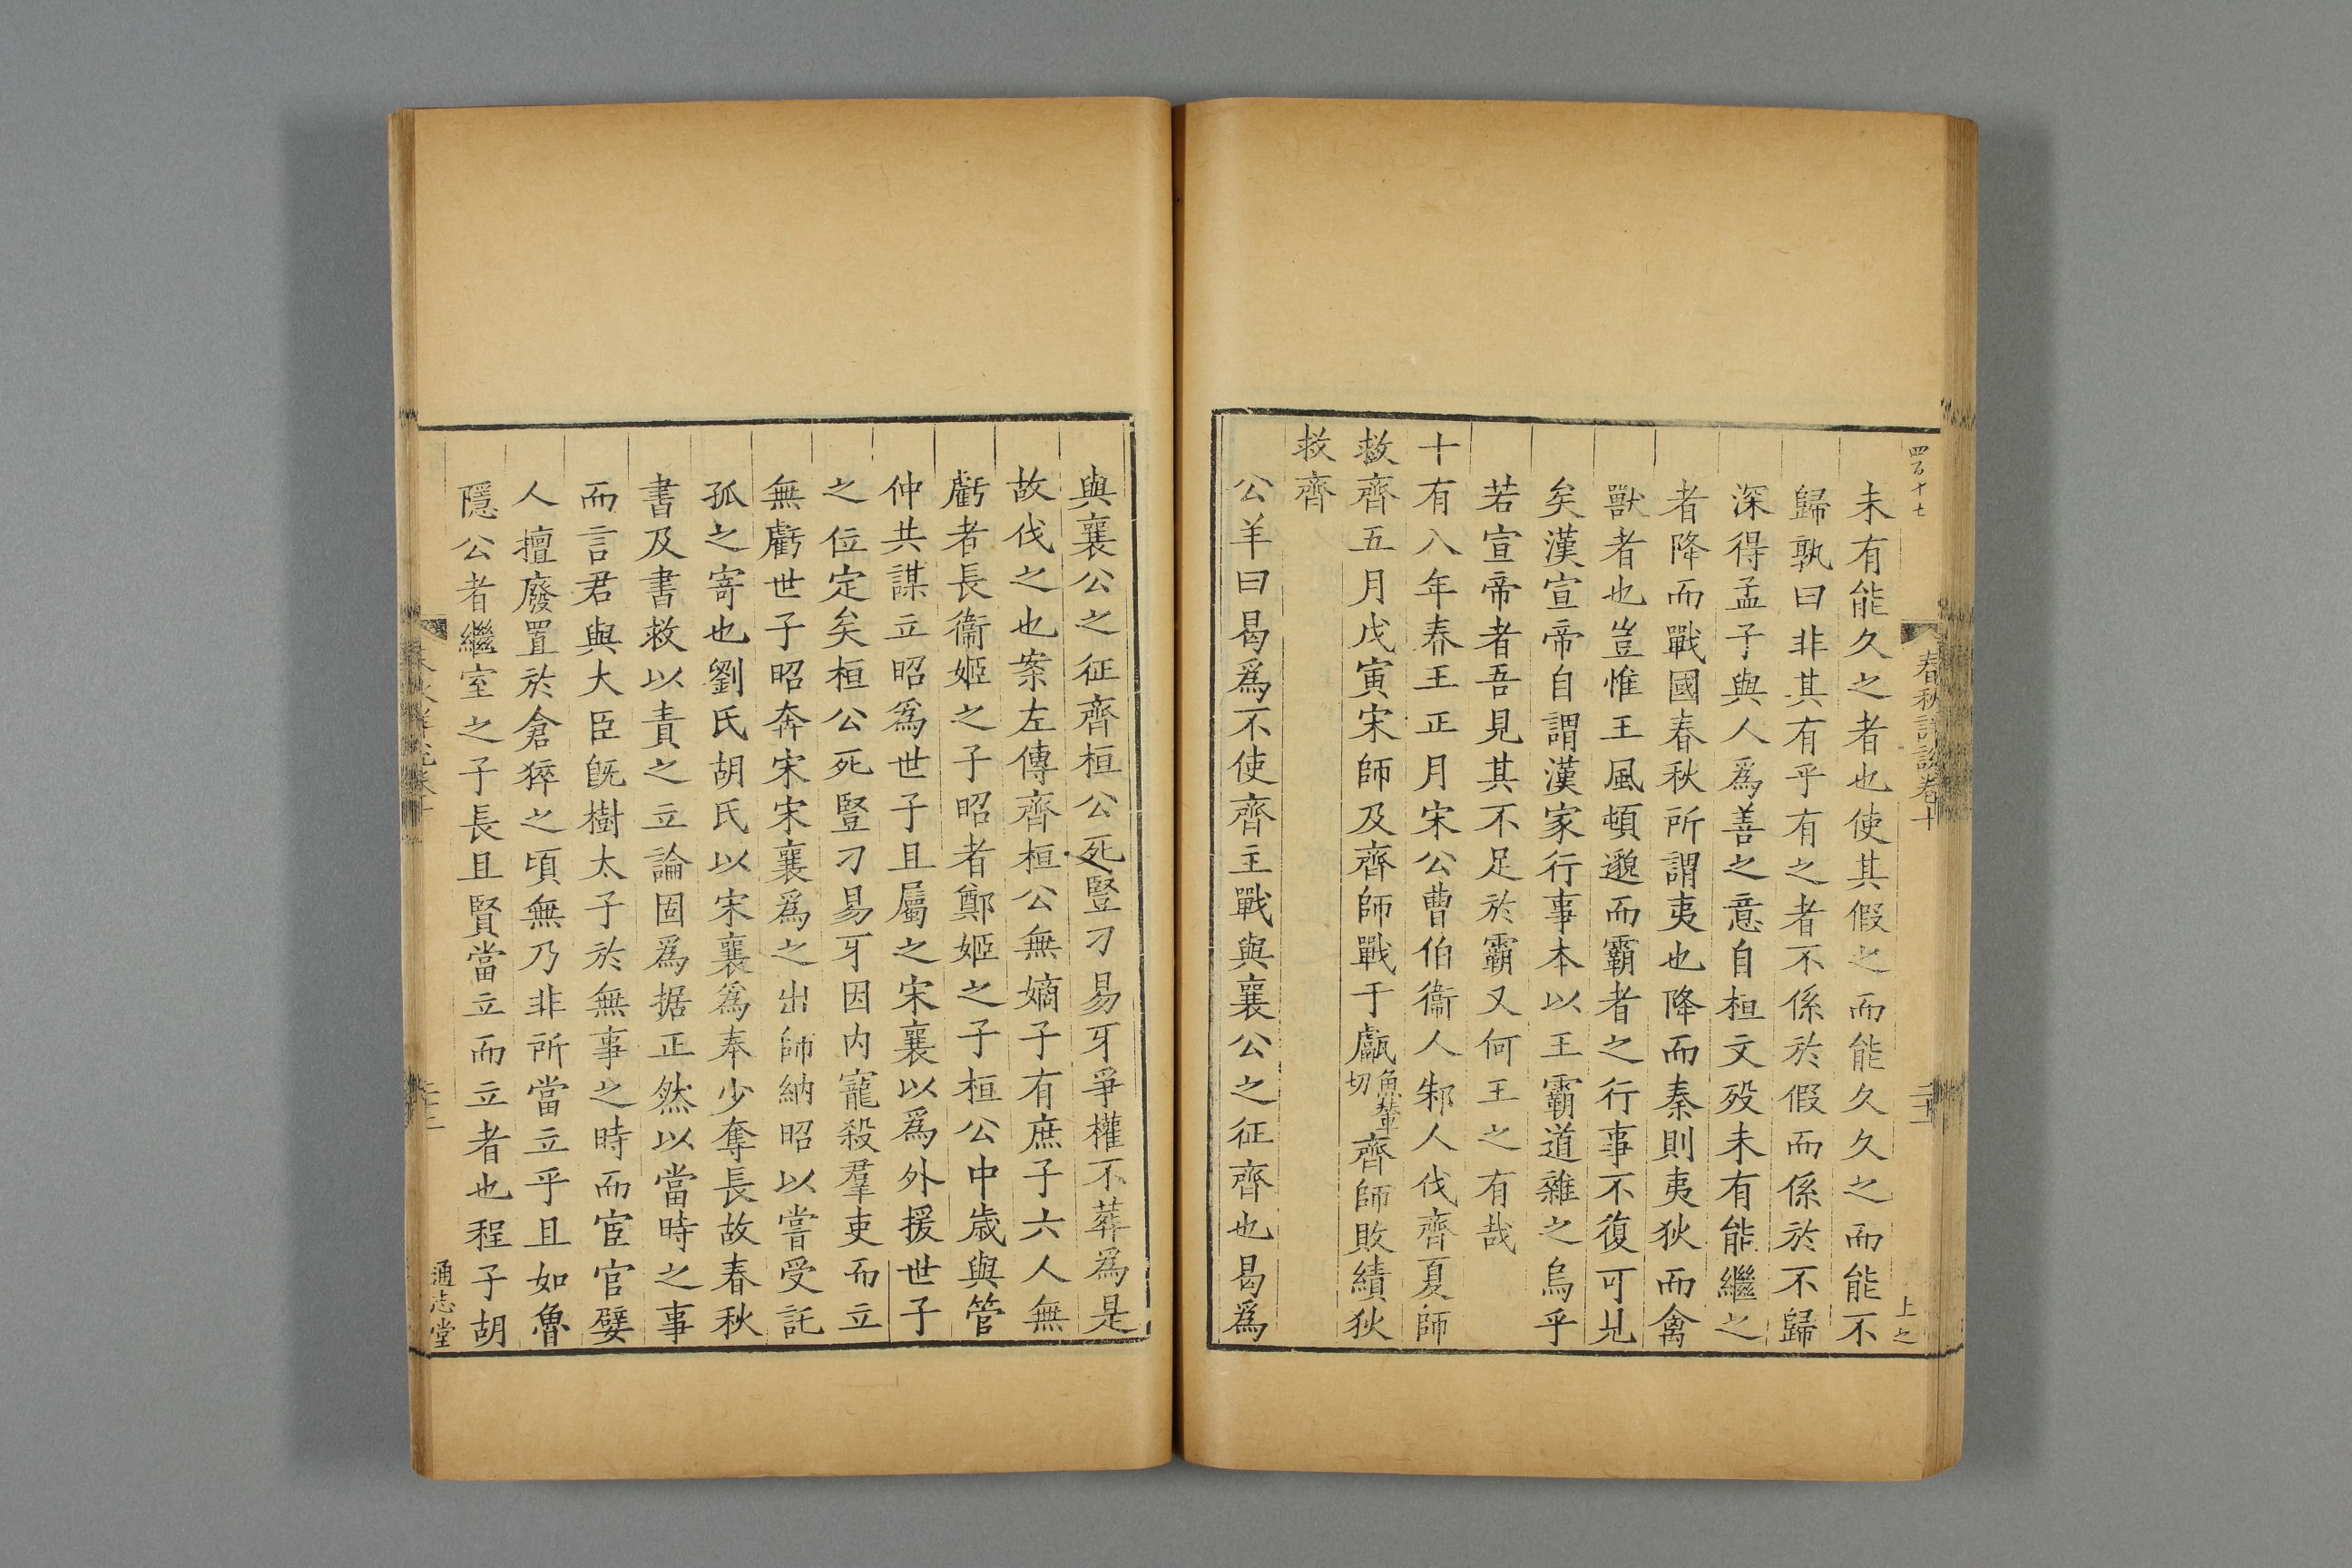 四百十七
春秋詳說卷十
二十一
上之
未有能久之者也使其假之而能久久之而能不
歸孰曰非其有乎有之者不係於假而係於不歸
深得孟子與人爲善之意自桓文歿未有能繼之
者降而戰國春秋所謂夷也降而秦則夷狄而禽
獸者也豈惟王風頓邈而霸者之行事不復可見
矣漢宣帝自謂漢家行事本以王霸道雜之烏乎
若宣帝者吾見其不足於霸又何王之有哉
十有八年春王正月宋公曹伯衞人邾人伐齊夏師
救齊五月戊寅宋師及齊師戰于甗魚輦切齊師敗績狄
救齊
公羊曰曷爲不使齊主戰與襄公之征齊也曷爲
與襄公之征齊桓公死豎刁易牙爭權不葬爲是
故伐之也案左傳齊桓公無嫡子有庶子六人無
虧者長衞姬之子昭者鄭姬之子桓公中歲與管
仲共謀立昭爲世子且屬之宋襄以爲外援世子
之位定矣桓公死豎刁易牙因內寵殺羣吏而立
無虧世子昭奔宋宋襄爲之出師納昭以嘗受託
孤之寄也劉氏胡氏以宋襄爲奉少奪長故春秋
書及書救以責之立論固爲据正然以當時之事
而言君與大臣旣樹太子於無事之時而宦官嬖
人擅廢置於倉猝之頃無乃非所當立乎且如魯
隱公者繼室之子長且賢當立而立者也程子胡
通志堂